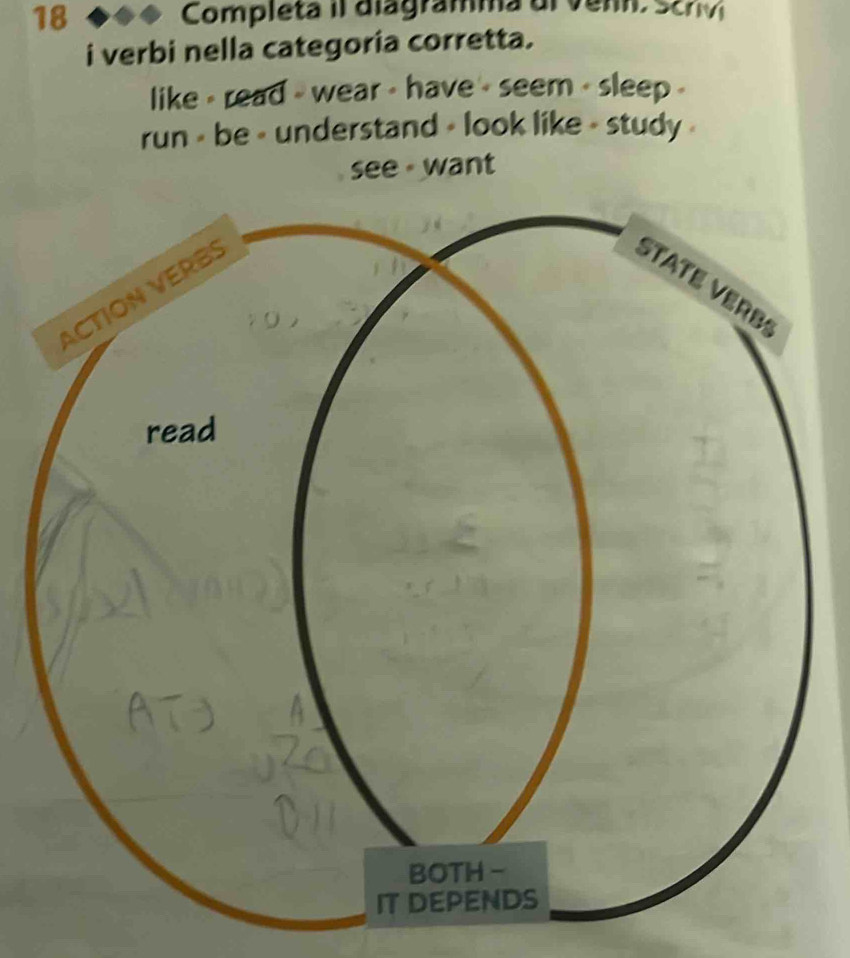 18 ◆◆◆ Completa il diagramma di Venn. Scrivi
i verbi nella categoria corretta.
like • read • wear • have • seem • sleep •
run • be • understand • look like • study •
see • want
ACTION VERBS
STATE VERBS
read
BOTH –
IT DEPENDS